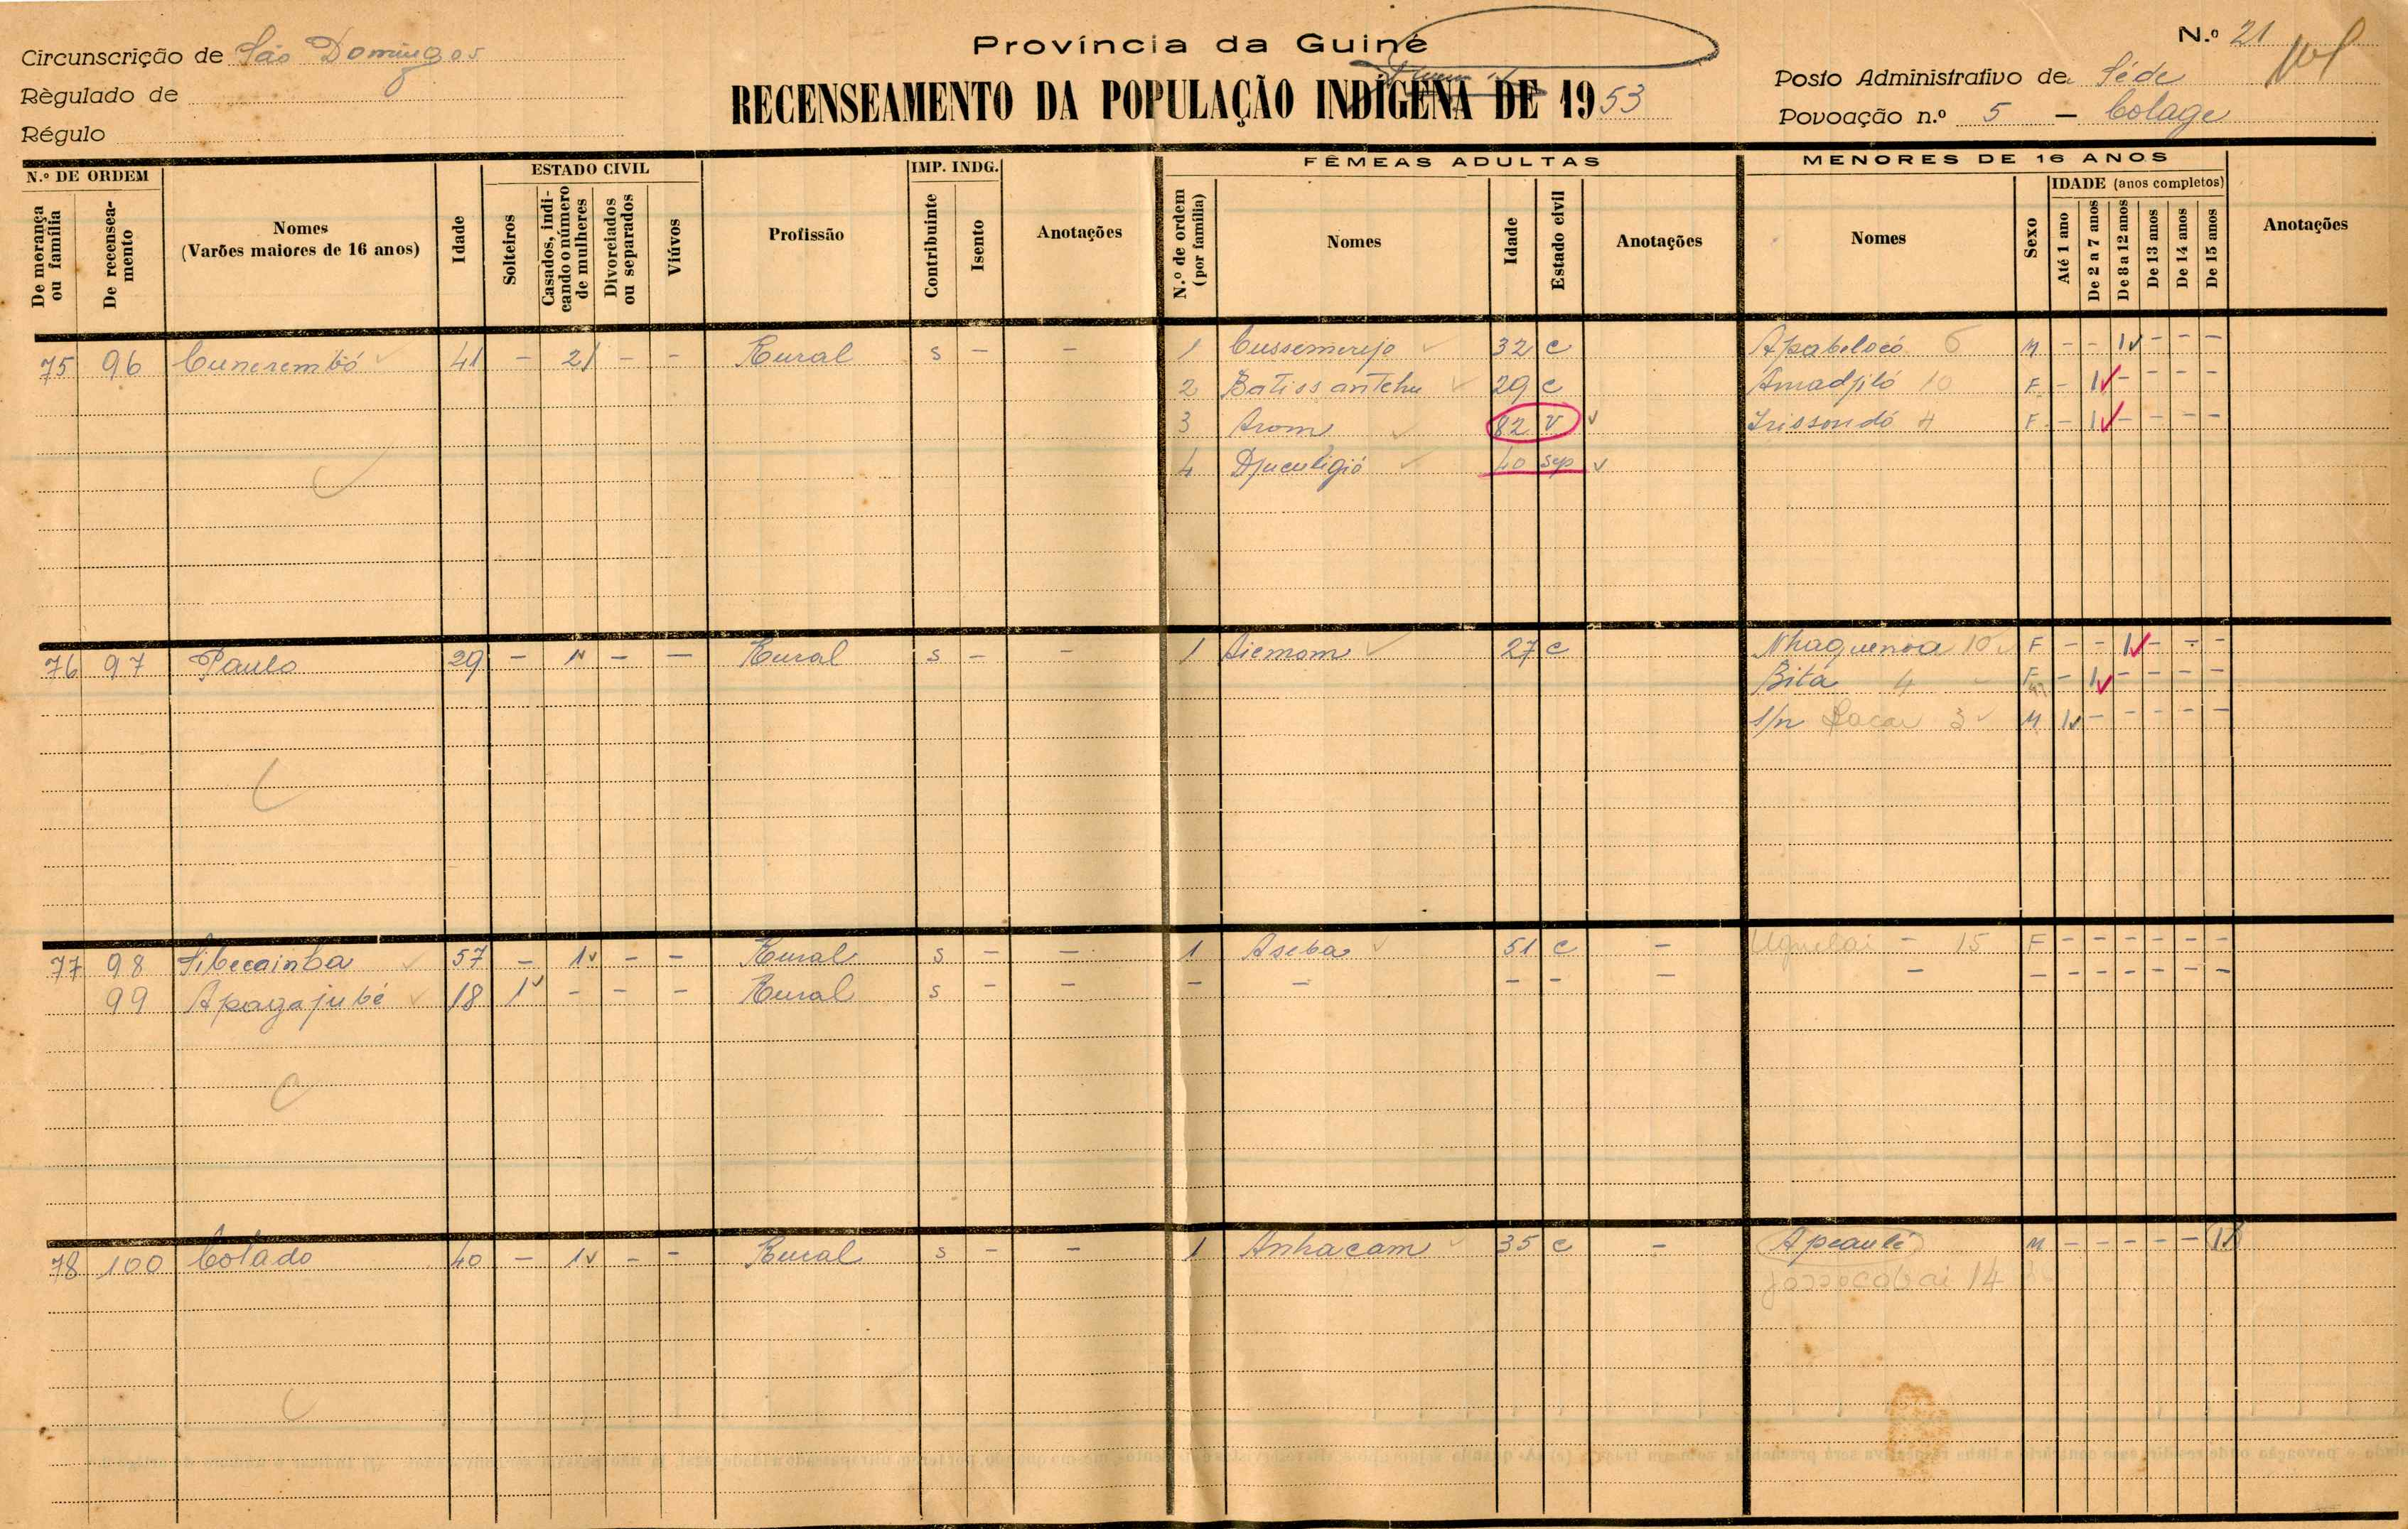 Província da Guiné
N.º 21
Circunscrição de São Domingos
RECENSEAMENTO DA POPULAÇÃO INDÍGENA DE 1953
Posto Administrativo de Séde
Règulado de
Povoação n.º 5 — Colage
Régulo
N.º DE ORDEM
De morança ou família
De recenseamento
Nomes
(Varões maiores de 16 anos)
Idade
ESTADO CIVIL
Solteiros
Casados, indicando o número de mulheres
Divorciados ou separados
Viúvos
Profissão
IMP. INDG.
Contribuinte
Isento
Anotações
FÊMEAS ADULTAS
N.º de ordem (por família)
Nomes
Idade
Estado civil
Anotações
MENORES DE 16 ANOS
Nomes
Sexo
IDADE (anos completos)
Até 1 ano
De 2 a 7 anos
De 8 a 12 anos
De 13 anos
De 14 anos
De 15 anos
Anotações
75 96 Cunerembó 41 - 2 - - Rural s - - 1 Cussemereje 32 c Apabelocó 6 M - - 1 - - -
2 Batissantchu 29 c Amadjiló 10 F - 1 - - - -
3 Arom 82 V Irissondó 4 F - 1 - - - -
4 Djuculigió 40 sep
76 97 Paulo 29 - 1 - - Rural s - - 1 Aiemom 27 c Nhaquenoa 10 F - - 1 - - -
Bita 4 F - 1 - - - -
s/n 3 M 1 - - - - -
77 98 Sibecainba 57 - 1 - - Rural s - - 1 Aseba 51 c - Uguelai - 15 F - - - - - -
99 Apagajubé 18 1 - - - Rural s - - - - - - - - - - - - - - -
78 100 Cotado 40 - 1 - - Rural s - - 1 Anhacam 35 c - Apeaulé M - - - - - 1
Jossocabai 14